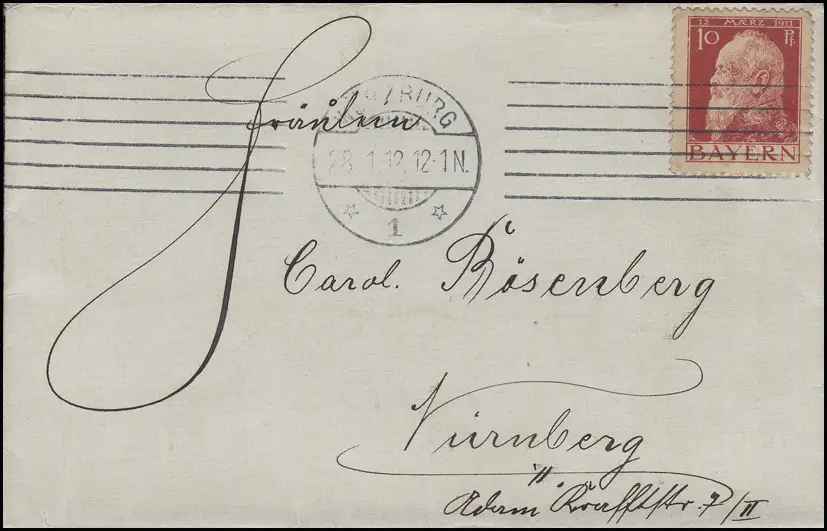 12 MÆRZ 1911
10 Pf.
BAYERN
28.1.12.12-1N.
1
Fräulein
Carol. Rosenberg
Nürnberg
Adam Kraftstr. 7/II